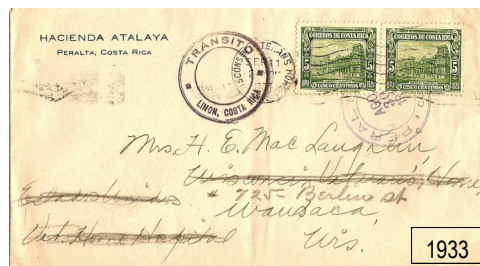 HACIENDA ATALAYA
PERALTA, COSTA RICA
TRANSITO
LIMON, COSTA RICA
CORREOS DE COSTA RICA
5 5
CINCO CENTIMOS
CORREOS DE COSTA RICA
5 5
CINCO CENTIMOS
Mrs. H. E. Mac Laughlin
Wisconsin Veteran's Home
Estados Unidos
725 Berlin St
Waupaca,
Vet. Home Hospital
Wis.
1933